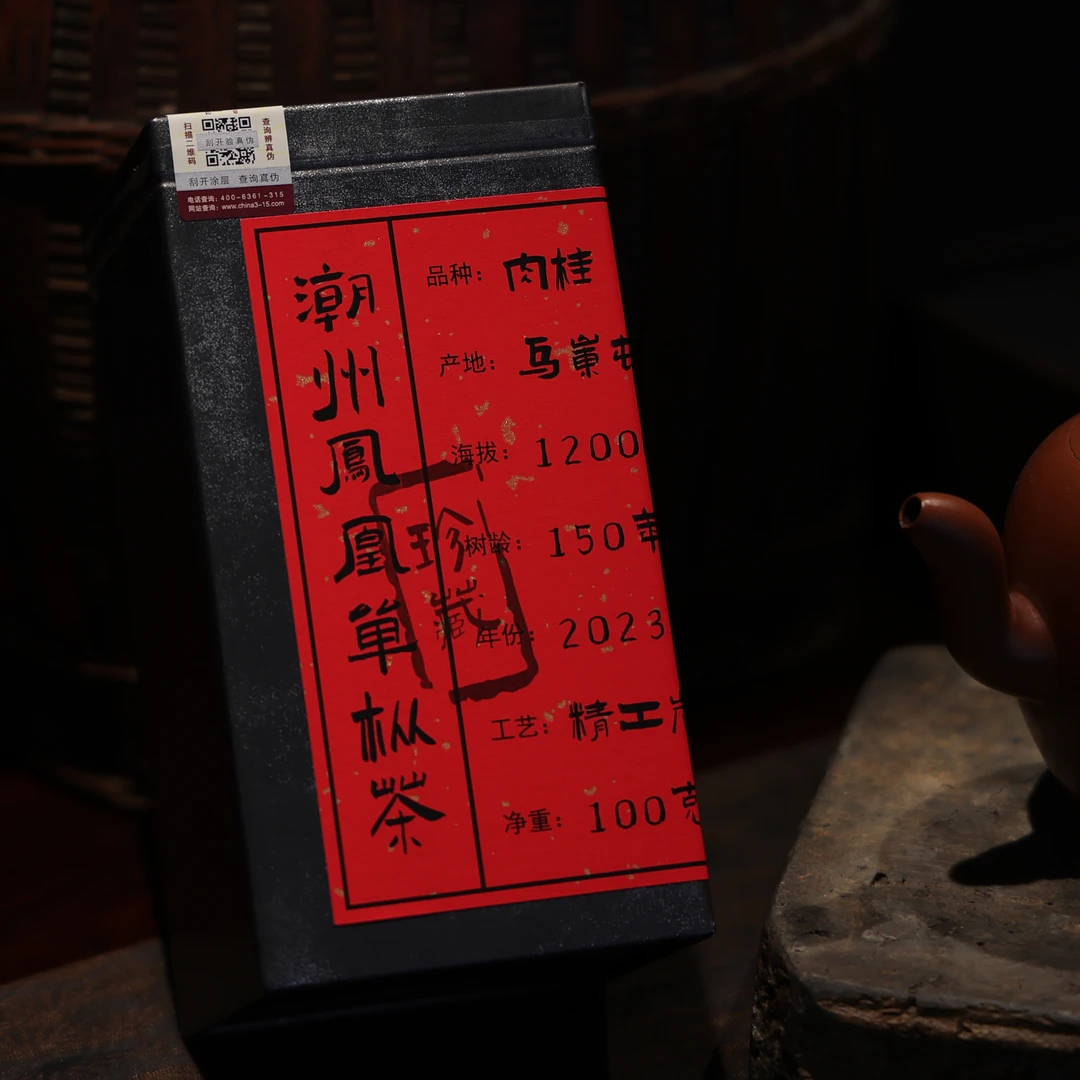 扫描二维码
刮开验真伪
查询辨真伪
刮开涂层 查询真伪
电话查询：400-6361-315
网站查询：www.china3-15.com
潮州鳳凰单枞茶
珍藏
品种：肉桂
产地：马崬
海拔：1200
树龄：150年
年份：2023
工艺：精工
净重：100克